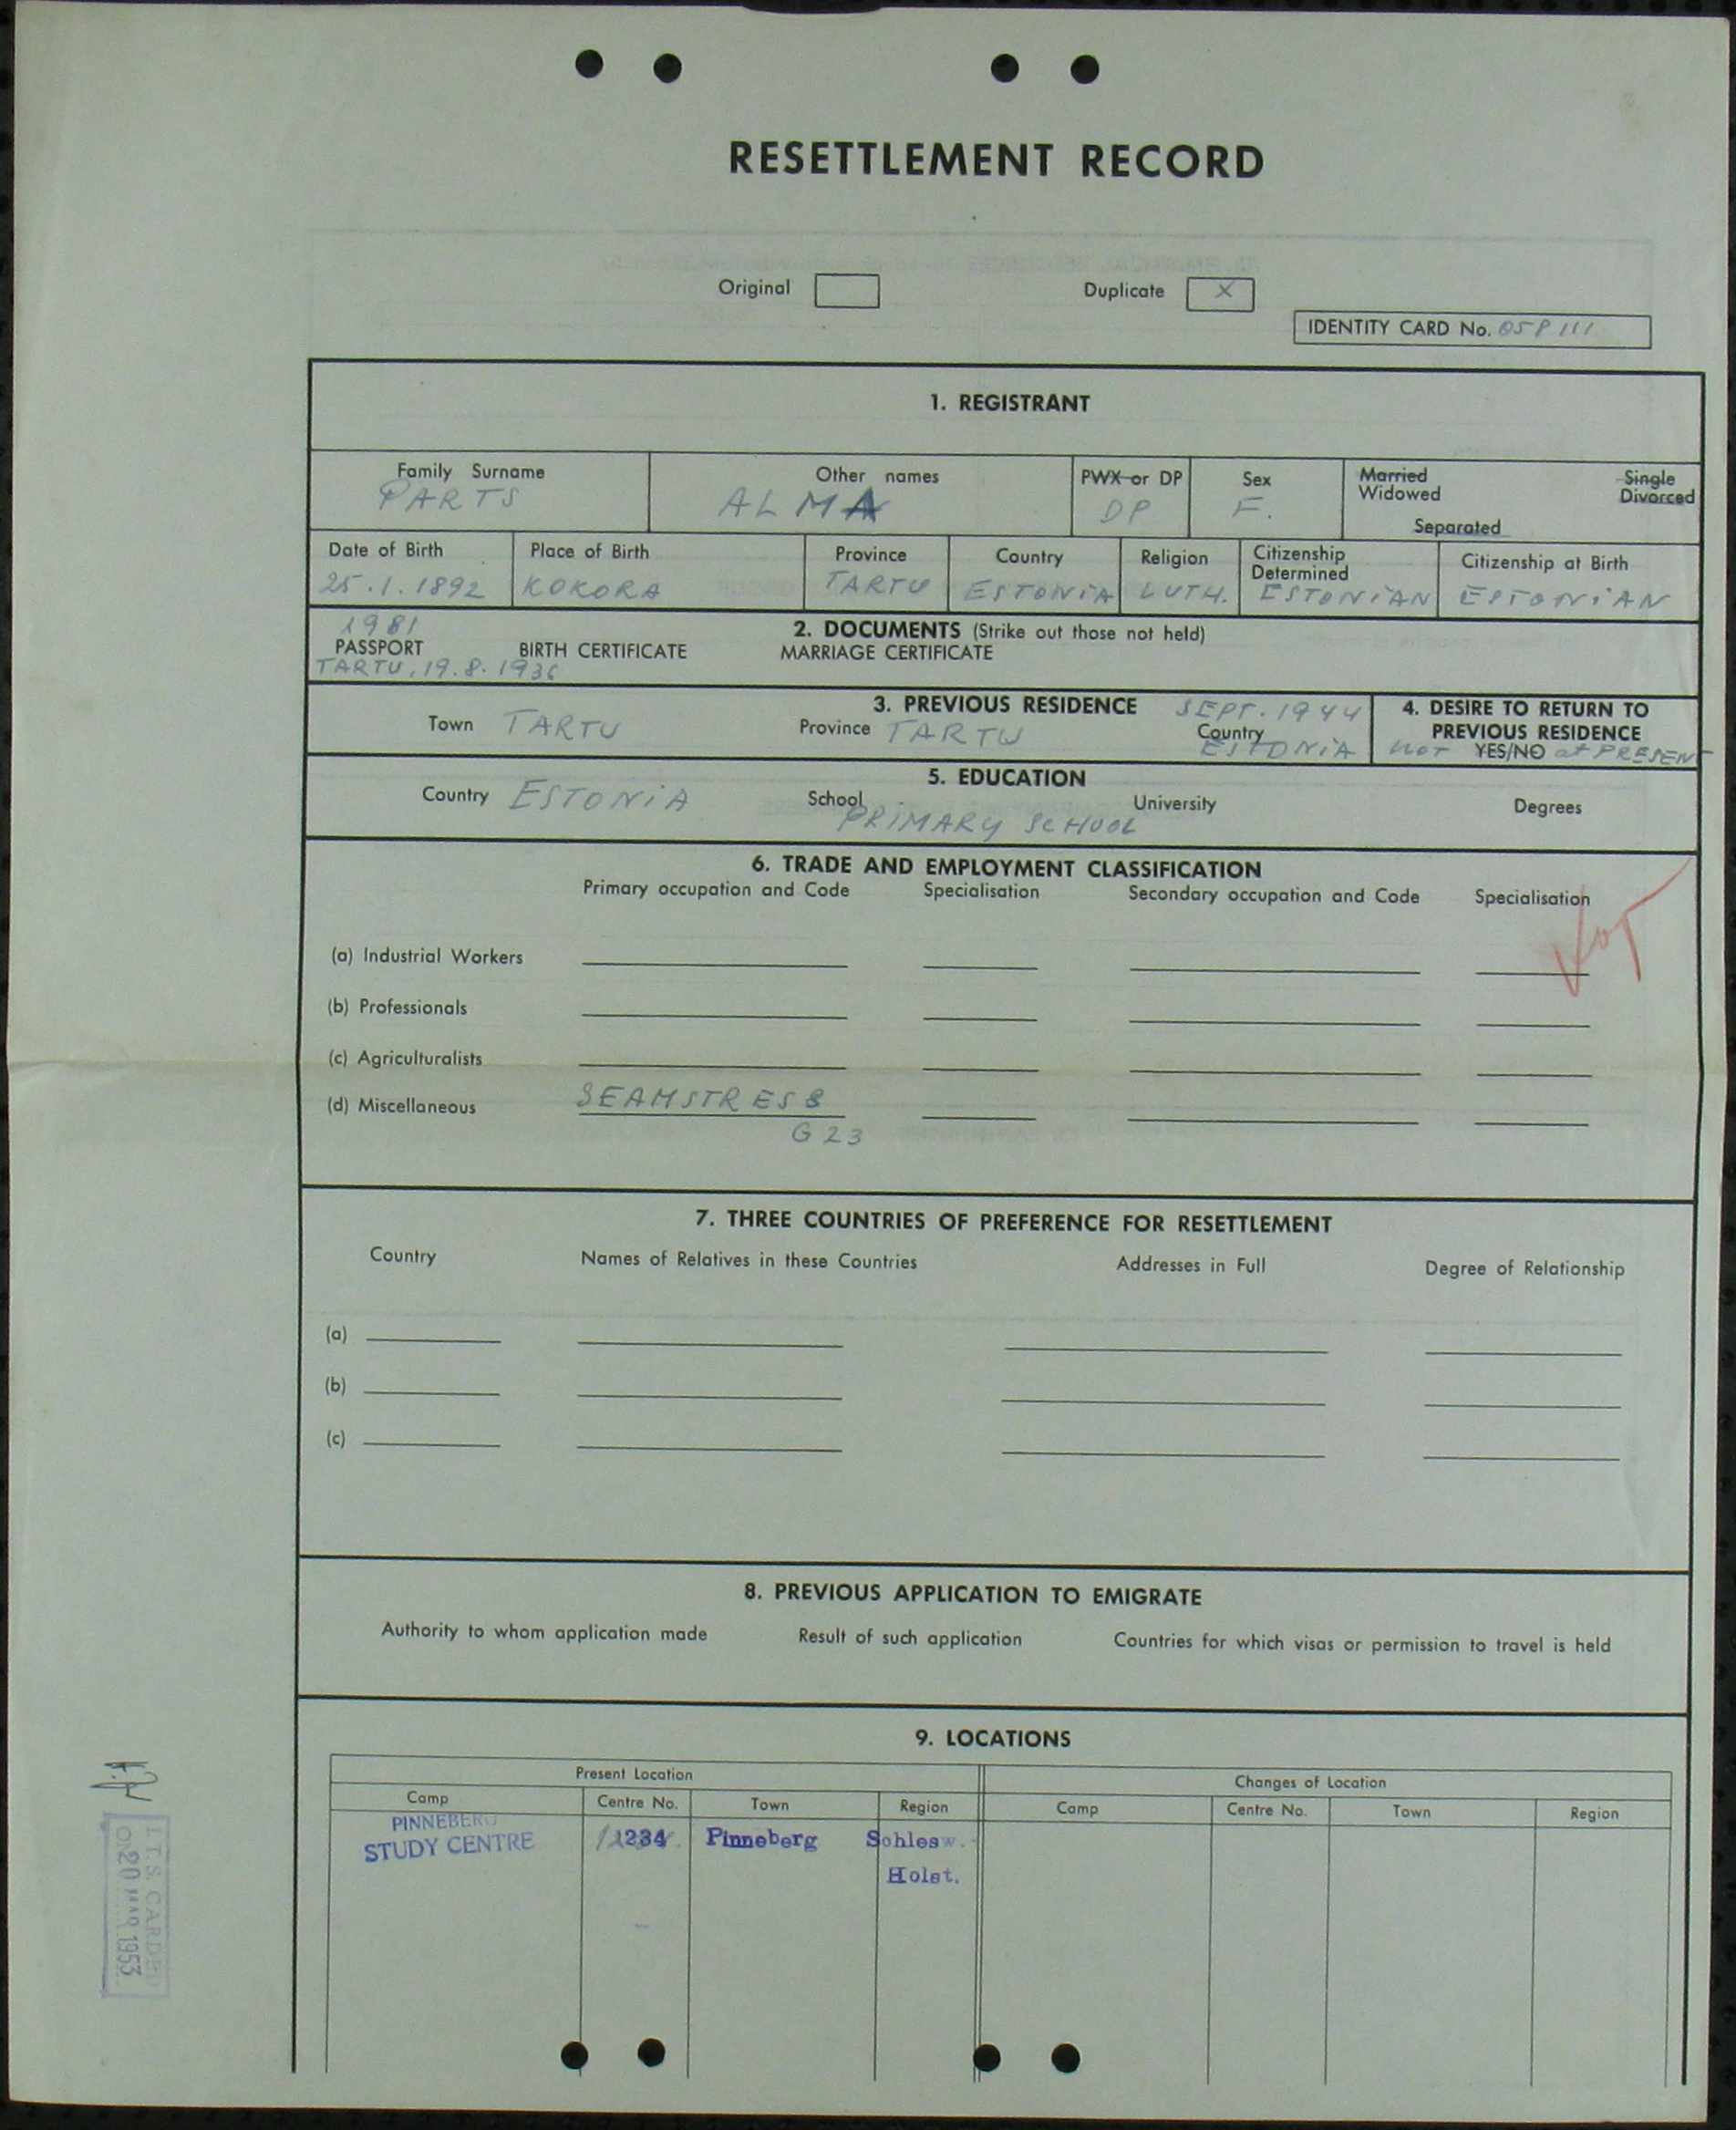 RESETTLEMENT RECORD
Original
Duplicate X
IDENTITY CARD No. 058111
1. REGISTRANT
Family Surname Other names PWX or DP Sex Married Single
Widowed Divorced
PARTS ALMA DP F.
Separated
Date of Birth Place of Birth Province Country Religion Citizenship Determined Citizenship at Birth
25.1.1892 KOKORA TARTU ESTONIA LUTH. ESTONIAN ESTONIAN
1981
2. DOCUMENTS (Strike out those not held)
PASSPORT BIRTH CERTIFICATE MARRIAGE CERTIFICATE
TARTU, 19.8.1936
3. PREVIOUS RESIDENCE SEPT. 1944
Town TARTU Province TARTU Country ESTONIA
4. DESIRE TO RETURN TO
PREVIOUS RESIDENCE
not YES/NO at PRESENT
5. EDUCATION
Country ESTONIA School University Degrees
PRIMARY SCHOOL
6. TRADE AND EMPLOYMENT CLASSIFICATION
Primary occupation and Code Specialisation Secondary occupation and Code Specialisation
(a) Industrial Workers
(b) Professionals
(c) Agriculturalists
(d) Miscellaneous SEAMSTRESS
G 23
7. THREE COUNTRIES OF PREFERENCE FOR RESETTLEMENT
Country Names of Relatives in these Countries Addresses in Full Degree of Relationship
(a)
(b)
(c)
8. PREVIOUS APPLICATION TO EMIGRATE
Authority to whom application made Result of such application Countries for which visas or permission to travel is held
9. LOCATIONS
Present Location Changes of Location
Camp Centre No. Town Region Camp Centre No. Town Region
PINNEBERG
STUDY CENTRE 1234 Pinneberg Schlesw.-
Holst.
I.T.S. CARDED
ON 20 MAR 1953